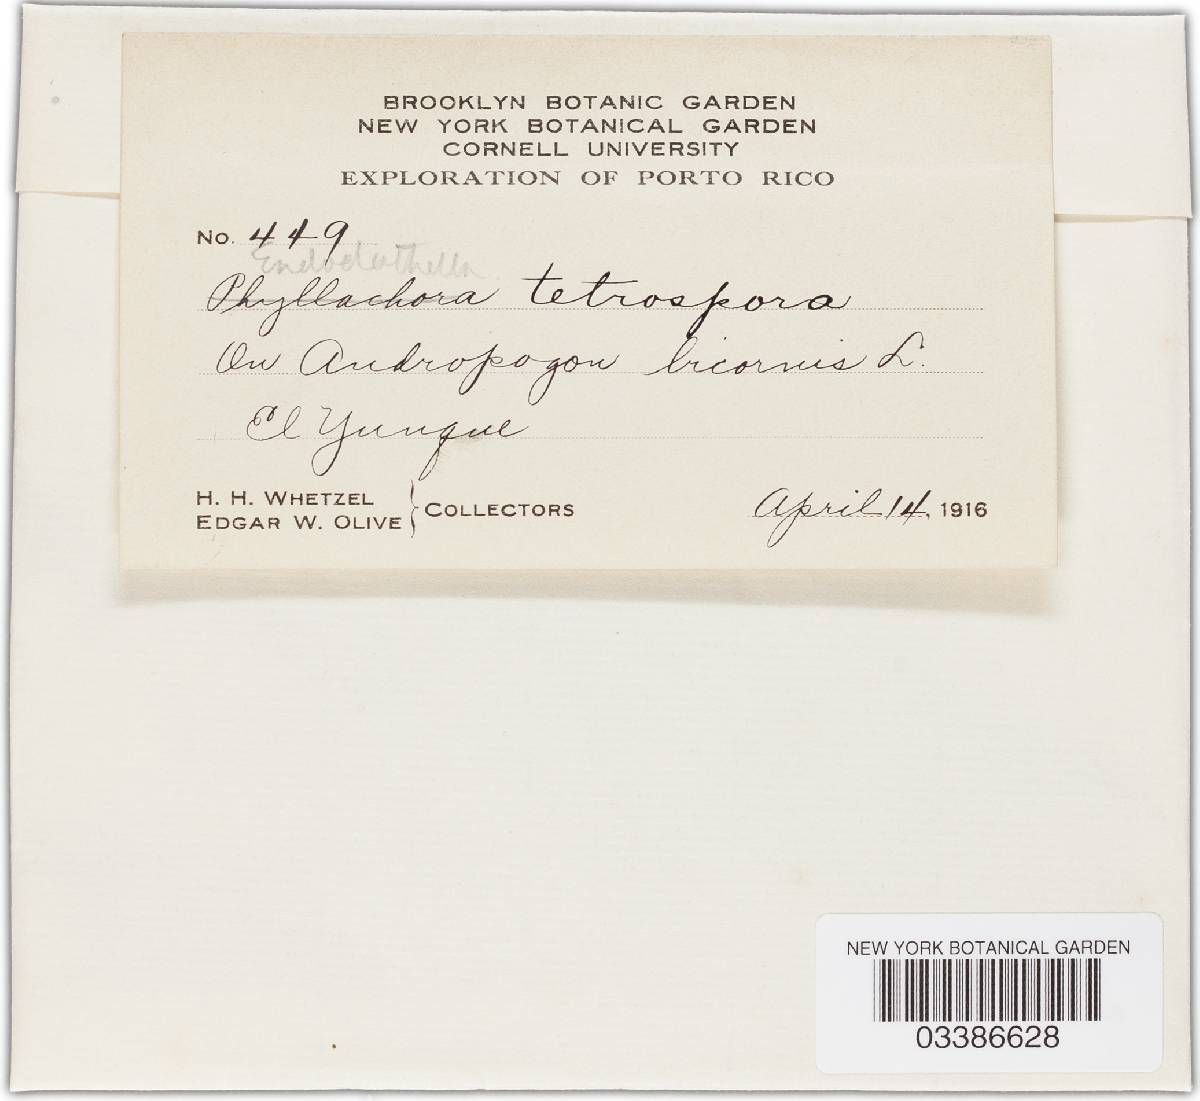 BROOKLYN BOTANIC GARDEN
NEW YORK BOTANICAL GARDEN
CORNELL UNIVERSITY
EXPLORATION OF PORTO RICO
No. 449
Endodothella
Phyllachora tetrospora
On Andropogon bicornis L.
El Yunque
H. H. WHETZEL
EDGAR W. OLIVE } COLLECTORS
April 14, 1916
NEW YORK BOTANICAL GARDEN
03386628